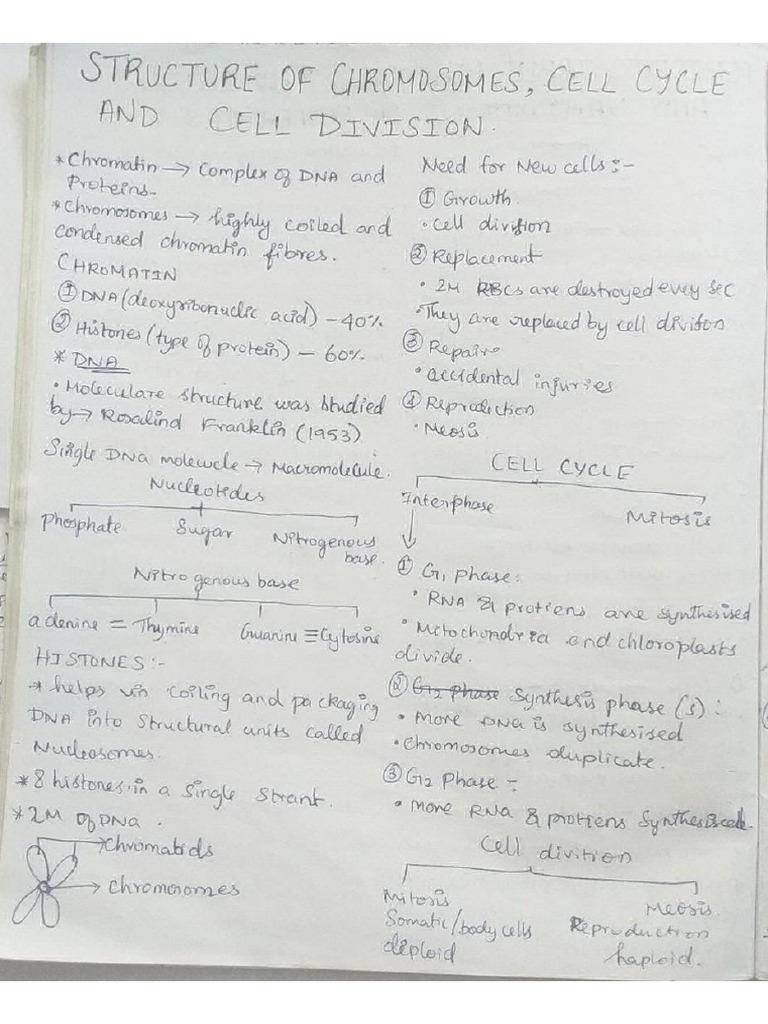 STRUCTURE OF CHROMOSOMES, CELL CYCLE
AND CELL DIVISION.
* Chromatin → Complex of DNA and
Proteins.
* Chromosomes → highly coiled and
condensed chromatin fibres.
CHROMATIN
① DNA (deoxyribonuclic acid) - 40%
② Histones (type of protein) - 60%
* DNA
• Moleculare structure was studied
by → Rosalind Franklin (1953)
Single DNA molecule → Macromolecule.
Nucleotides
Phosphate Sugar Nitrogenous
base.
Nitrogenous base
adenine = Thymine Guanine ≡ Cytosine
HISTONES :-
* helps in coiling and packaging
DNA into structural units called
Nucleosomes.
* 8 histones in a single strant.
* 2M of DNA.
Chromatids
Chromosomes
Need for New cells :-
① Growth
• Cell division
② Replacement
• 2M RBCs are destroyed every sec
• They are replaced by cell divison
③ Repair
• accidental injuries
④ Reproduction
• Meosis
CELL CYCLE
Interphase Mitosis
① G1 phase:
• RNA & protiens are synthesised
• Mitochondria and chloroplasts
divide.
② G2 phase Synthesis phase (s) :
• More DNA is synthesised
• Chromosomes duplicate.
③ G2 Phase -
• More RNA & protiens synthesised.
Cell divition
Mitosis Meosis.
Somatic/body cells Reproduction
diploid haploid.